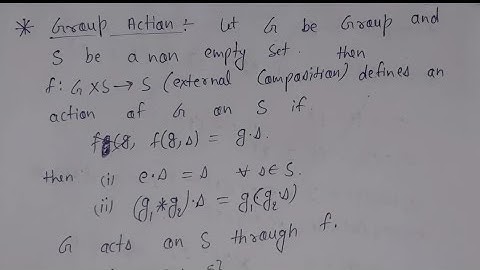 * Group Action :- Let G be Group and
S be a non empty set. then
f: G×S→S (external Composition) defines an
action of G on S if
f(g,s) = g.s.
then (i) e.s = s ∀ s∈S.
(ii) (g₁*g₂).s = g₁(g₂.s)
G acts on S through f.